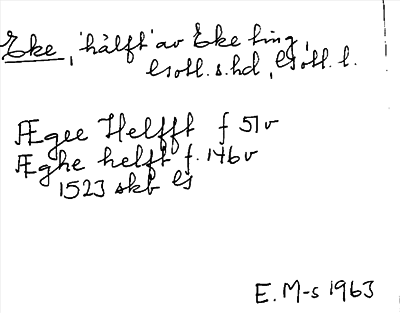 Eke, 'hälft' av Eke ting,
Gotl. s. hd, Gotl. l.
Ægee Helfft f 51v
Æghe helft f. 146v
1523 skb G
E. M-s 1963